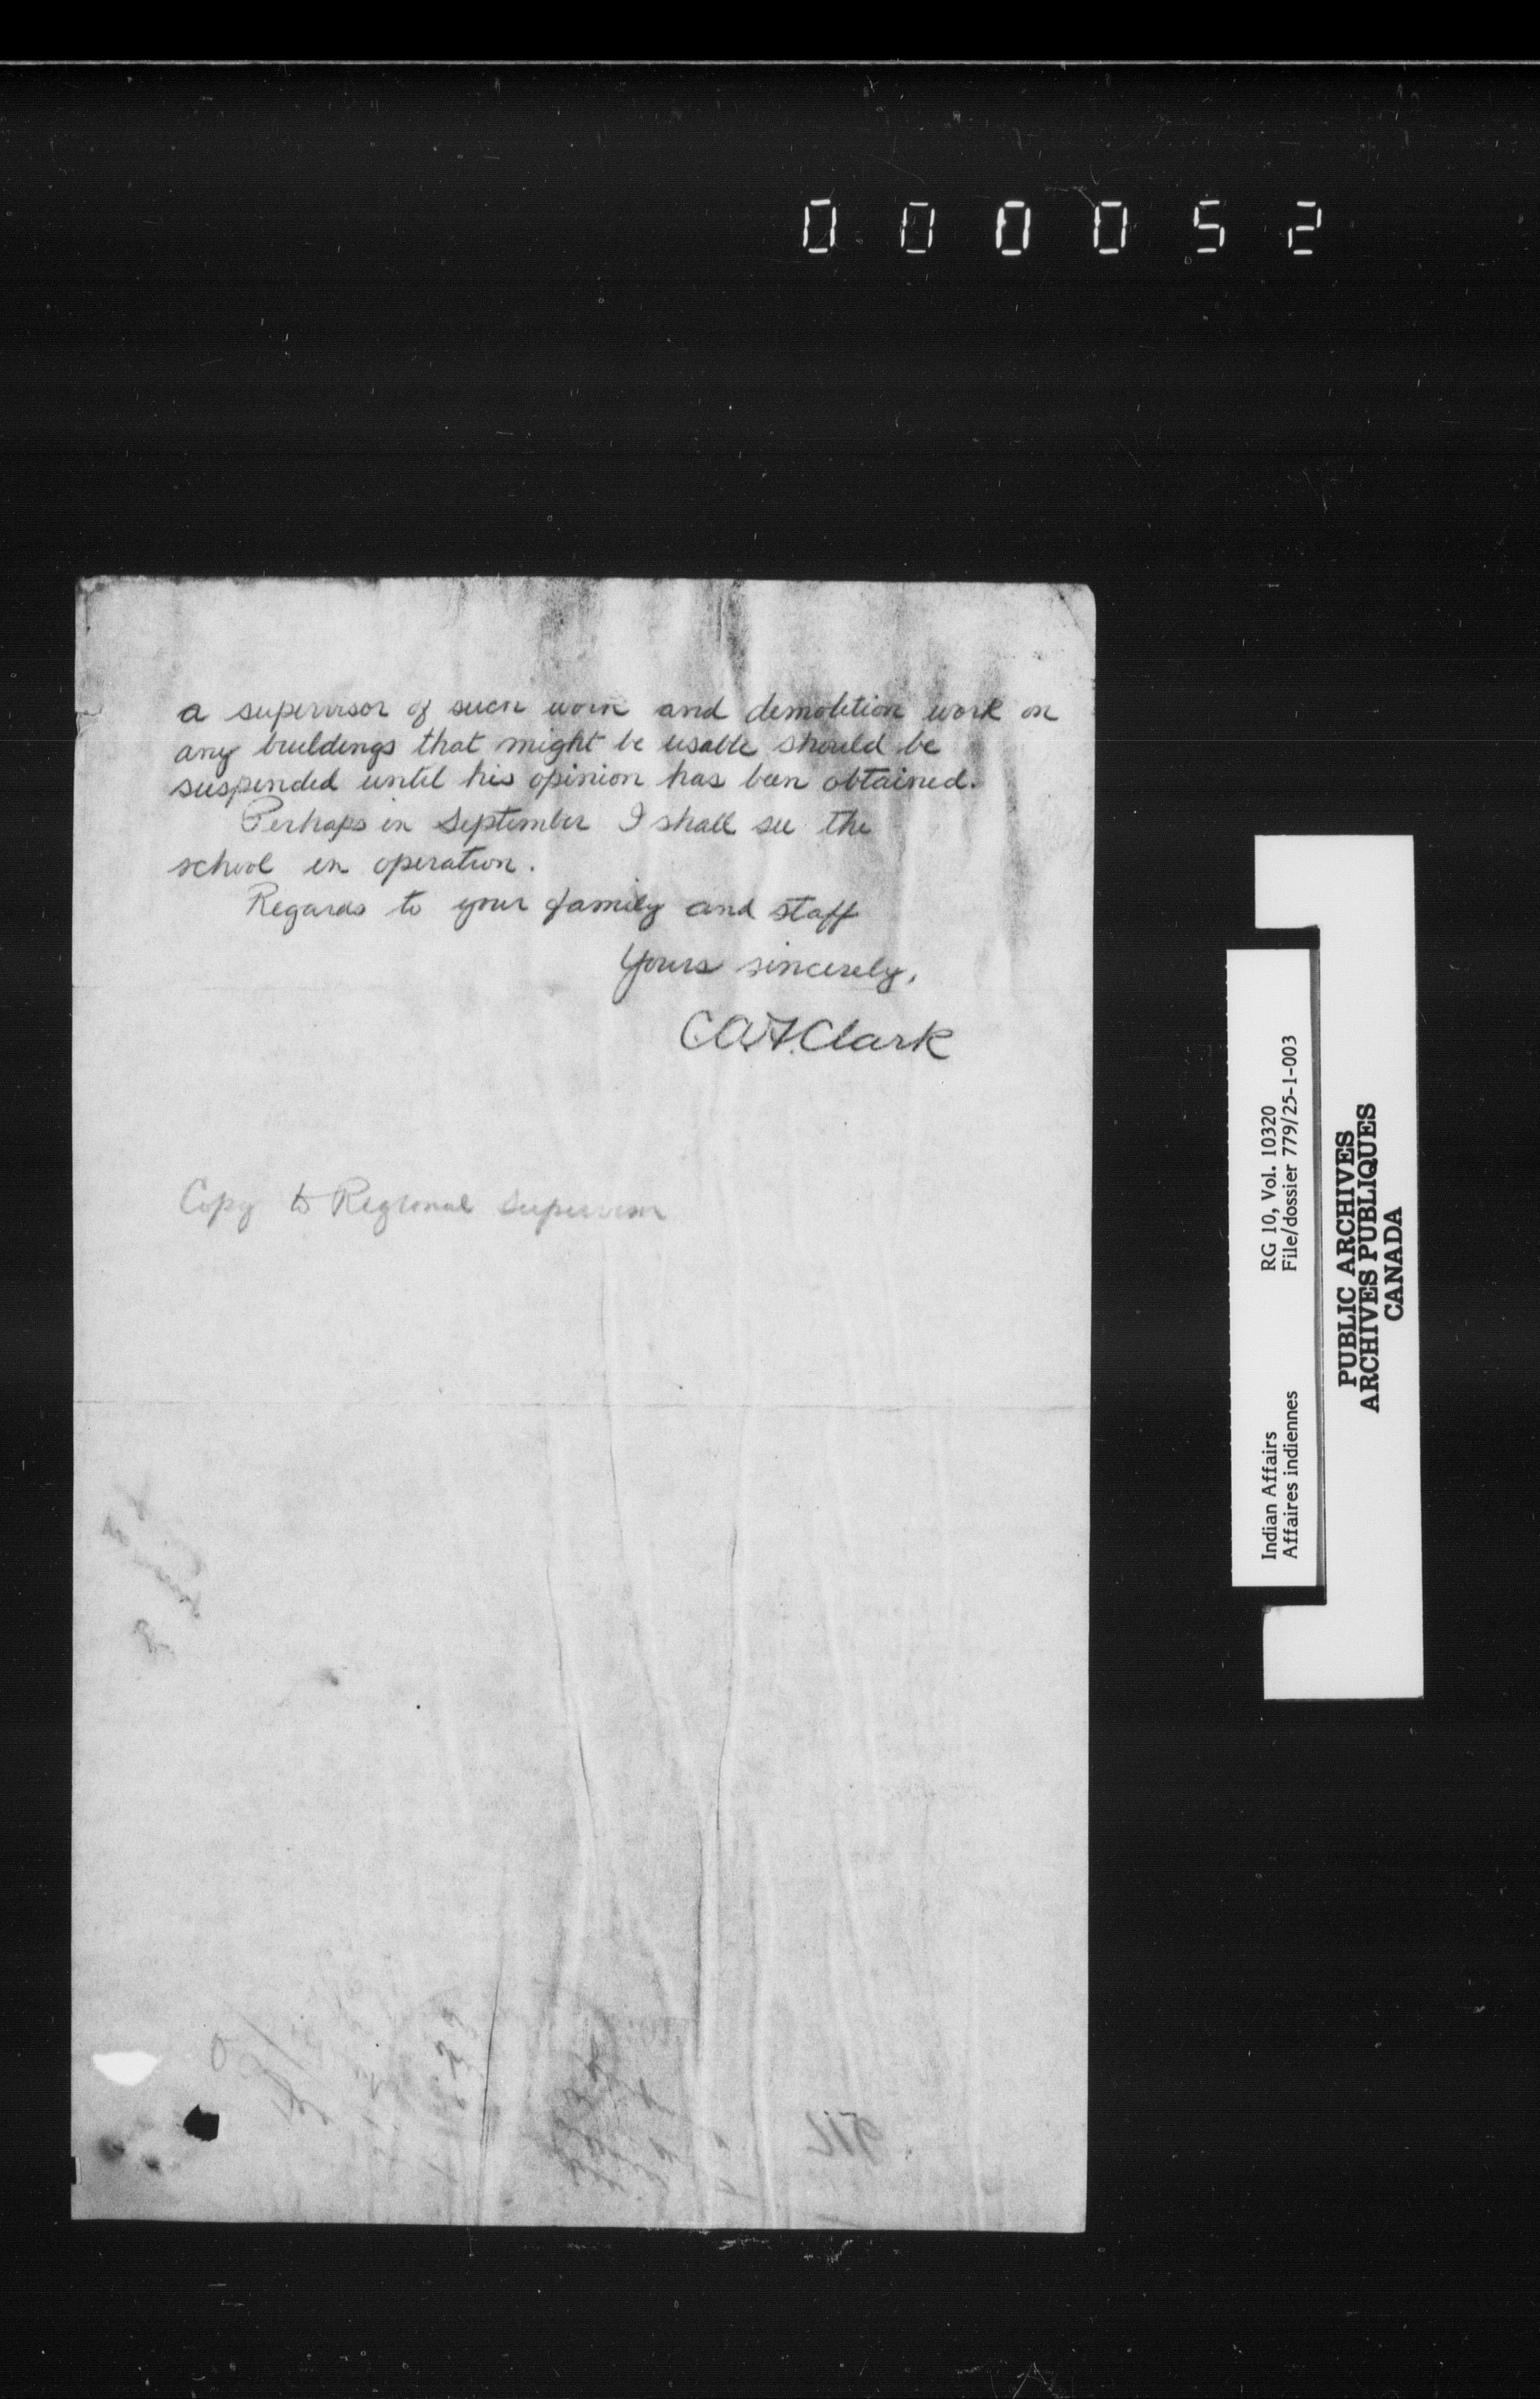 000052
a supervisor of such work and demolition work on
any buildings that might be usable should be
suspended until his opinion has been obtained.
Perhaps in September I shall see the
school in operation.
Regards to your family and staff
Yours sincerely,
C.A.F. Clark
Copy to Regional Supervisor
Indian Affairs RG 10, Vol. 10320
Affaires indiennes File/dossier 779/25-1-003
PUBLIC ARCHIVES
ARCHIVES PUBLIQUES
CANADA